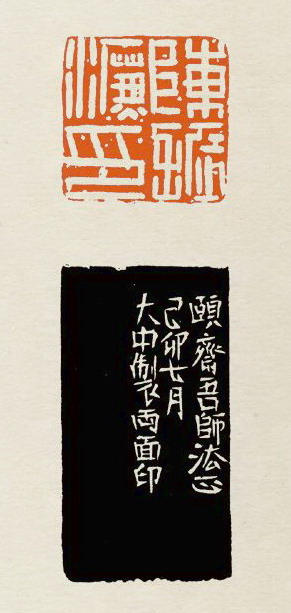 陳振
濂印
頤齋吾師法正
己卯七月
大中製兩面印